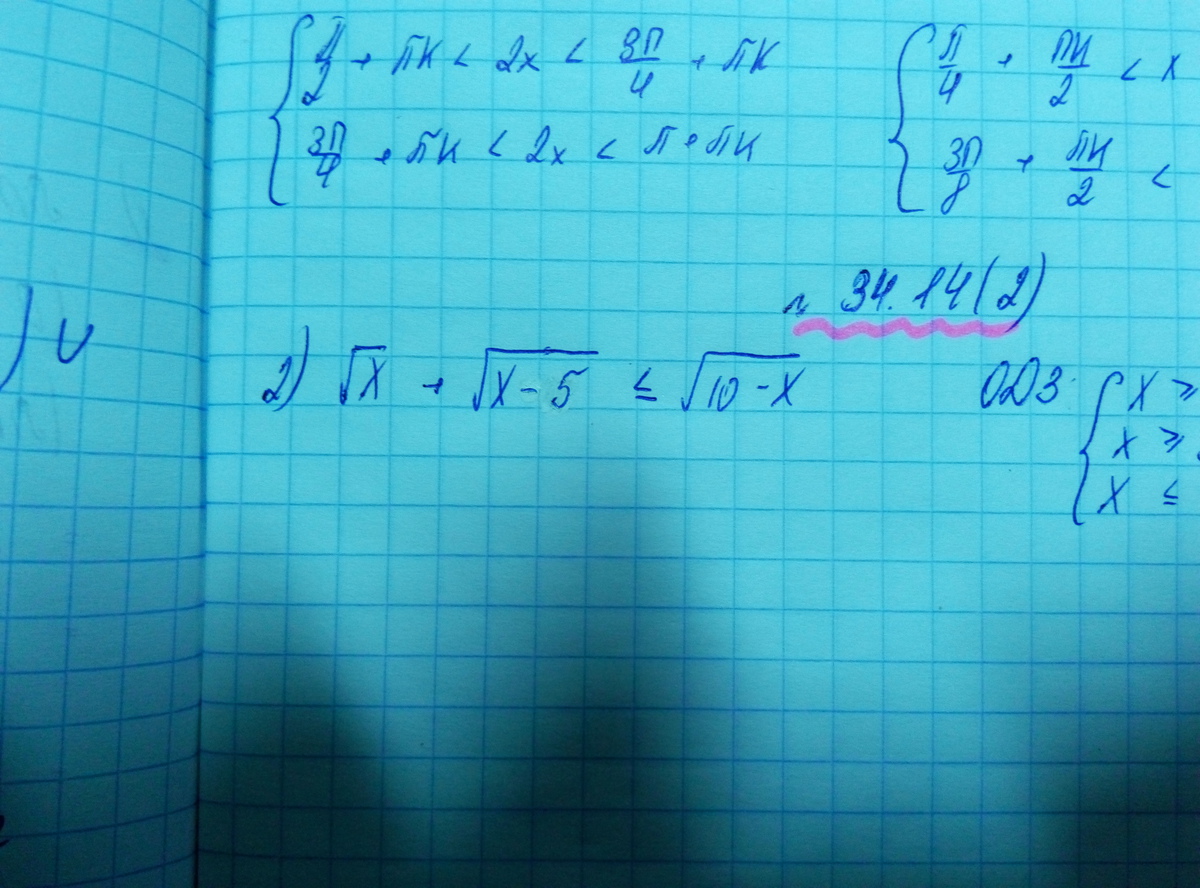 π/2 + πk < 2x < 3π/4 + πk
π/4 + πk/2 < x
3π/4 + πk < 2x < π + πk
3π/8 + πk/2 <
) ∪
34.14(2)
2) √x + √(x-5) ≤ √(10-x)
ОДЗ: { x ≥
x ≥
x ≤